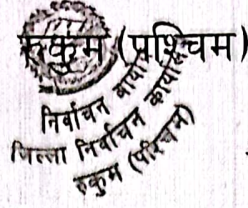 रुकुम (पश्चिम)
निर्वाचन आयोग
जिल्ला निर्वाचन कार्यालय
रुकुम (पश्चिम)